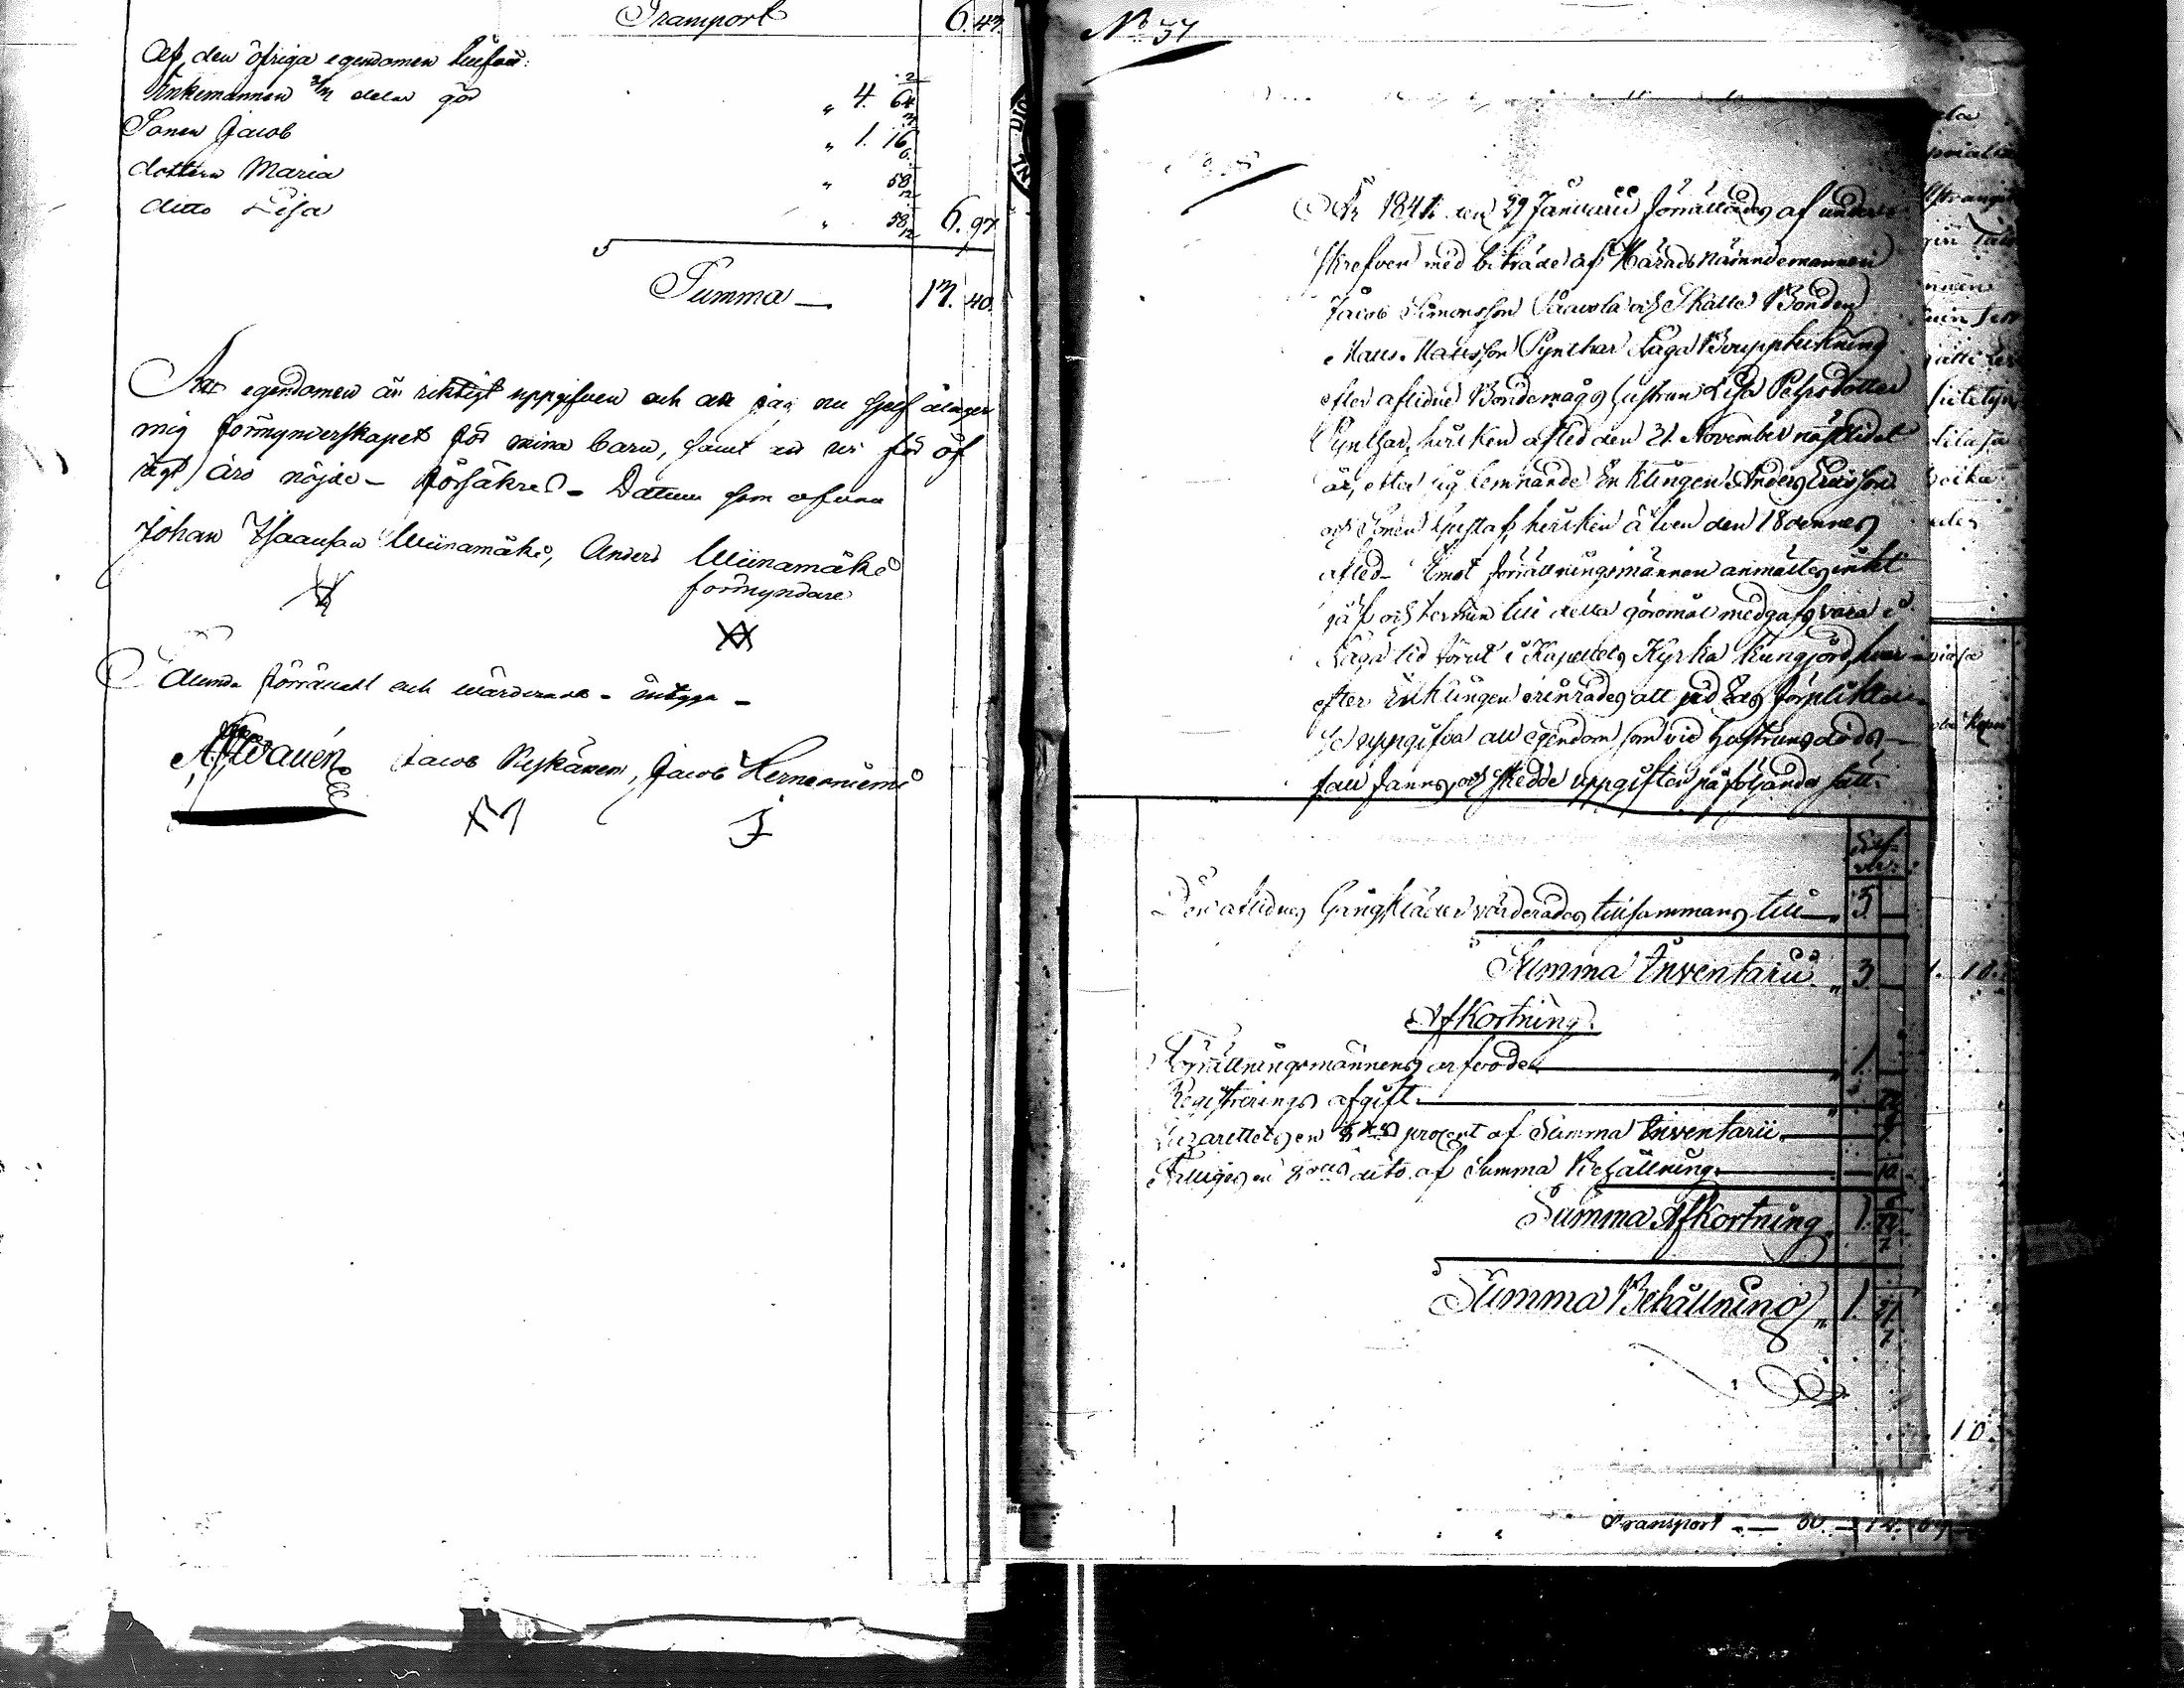 Transport 6. 47.
Af den öfriga egendomen tillfaller:
Enkemannen 2/3 delar gör " 4. 64 2/3
Sonen Jacob " 1. 16 3/6
dottren Maria " 58 /12
ditto Lisa " 58 /12 6. 97
Summa — 13. 40
Att egendomen är riktigt uppgifven och att jag nu sjelf åtager
mig förmynderskapet för mina barn, samt att vi för öf
rigt äro nöjde — försäkres — Datum som ofvan
Johan Isaacson Wiinamäki, Anders Wiinamäki
förmyndare
Sålunda förrättadt och wärderadt — intyga —
Jacob Nykänen, Jacob Hernesniemi
No 37
År 1841 den 29 Januarii förrättades af under-
skrefven med biträde af Häradsnämndemannen
Jacob Simonsson Saavola och Skatte Bonden
Mats Matsson Pynthar Laga Bouppteckning
efter aflidne Bondemågs hustrun Lisa Pehrsdotter
Pynthar, hvilken afled den 21 November nästlidet
år, efter sig lemnande Enklingen Anders Ericsson
och Sonen Gustaf, hvilken äfven den 18 dennes
afled — Emot förrättningsmännen anmältes intet
jäf och termin till detta göromål medgafs vara i
Laga tid förut i Kapellets Kyrka kungjord, hvar-
efter Enklingen erinrades att vid Eds förpliktel-
se uppgifva all egendom som vid Hustruns döds-
fall fanns, och skedde uppgiften på följande sätt:
Silf-
ver.
Den aflidnes Gångkläder värderades tillsammans till — " 3 —
Summa Inventarii " 3 —
Afkortning.
Förrättningsmännens arfvode — " 1. —
Registrerings afgift —
Lazarettets en 8dels procent af Summa Inventarii —
Fattiges en 8dels dito af Summa Behållning —
Summa Afkortning 1.
Summa Behållning " 1. 27
1. 10.
10.
Transport — 14. 07